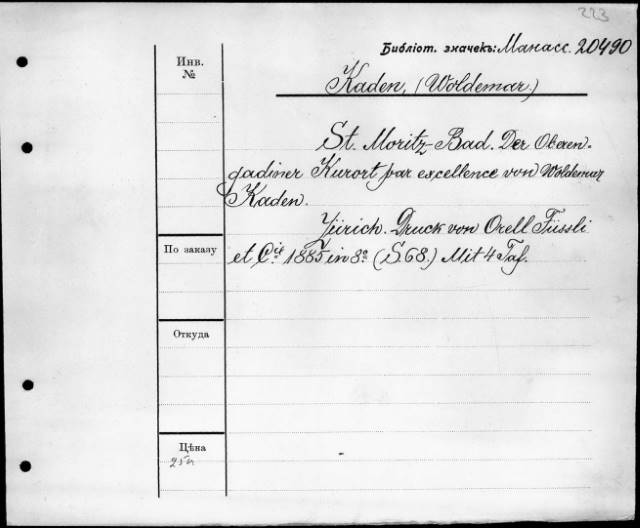 223
Библіот. значекъ: Манасс. 20490
Инв.
№
Kaden, (Woldemar.)
St. Moritz-Bad. Der Oberen-
gadiner Kurort par excellence von Woldemar
Kaden.
Zürich. Druck von Orell Füssli
По заказу
et Cie 1885 in 8º (S. 68.) Mit 4 Taf.
Откуда
Цѣна